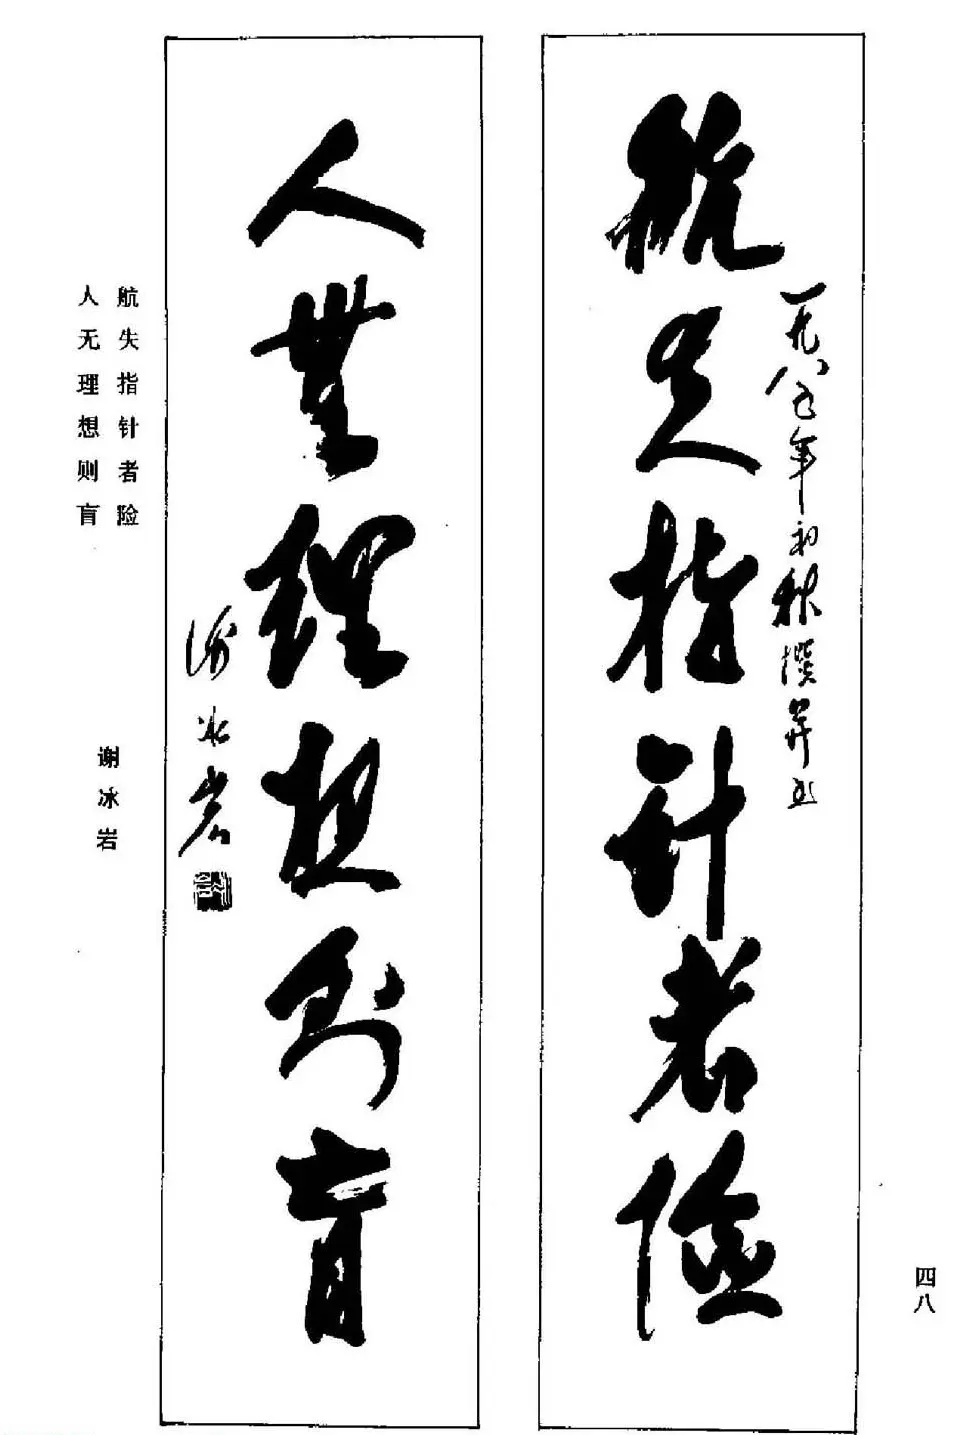 航失指針者險
一九八五年初秋撰并书
人無理想則盲
谢冰岩
航失指针者险
人无理想则盲
谢冰岩
四八